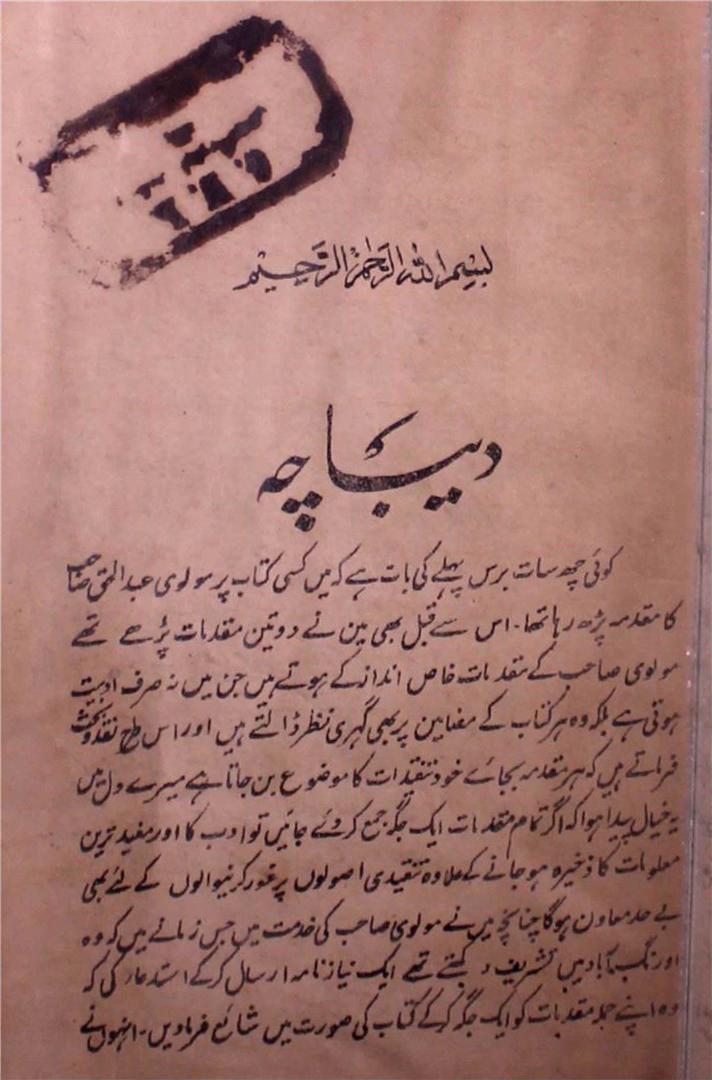 بسم الله الرحمن الرحيم
دیباچہ
کوئی چھ سات برس پہلے کی بات ہے کہ میں کسی کتاب پر مولوی عبدالحق صاحب
کا مقدمہ پڑھ رہا تھا۔ اس سے قبل بھی مین نے دو تین مقدمات پڑھے تھے
مولوی صاحب کے مقدمات خاص انداز کے ہوتے ہیں جن میں نہ صرف ادبیت
ہوتی ہے بلکہ وہ ہر کتاب کے مضامین پر بھی گہری نظر ڈالتے ہیں اور اس طرح نقد و بحث
فرماتے ہیں کہ ہر مقدمہ بجائے خود تنقیدات کا موضوع بن جاتا ہے میرے دل میں
یہ خیال پیدا ہوا کہ اگر تمام مقدمات ایک جگہ جمع کر دئے جائیں تو ادب کا اور مفید ترین
معلومات کا ذخیرہ ہو جانے کے علاوہ تنقیدی اصولوں پر غور کرنیوالوں کے لئے بھی
بے حد معاون ہوگا چنانچہ میں نے مولوی صاحب کی خدمت میں جس زمانے میں کہ وہ
اورنگ آباد میں تشریف رکھتے تھے ایک نیاز نامہ ارسال کر کے استدعا کی کہ
وہ اپنے جملہ مقدمات کو ایک جگہ کر کے کتاب کی صورت میں شائع فرماویں۔ انہوں نے